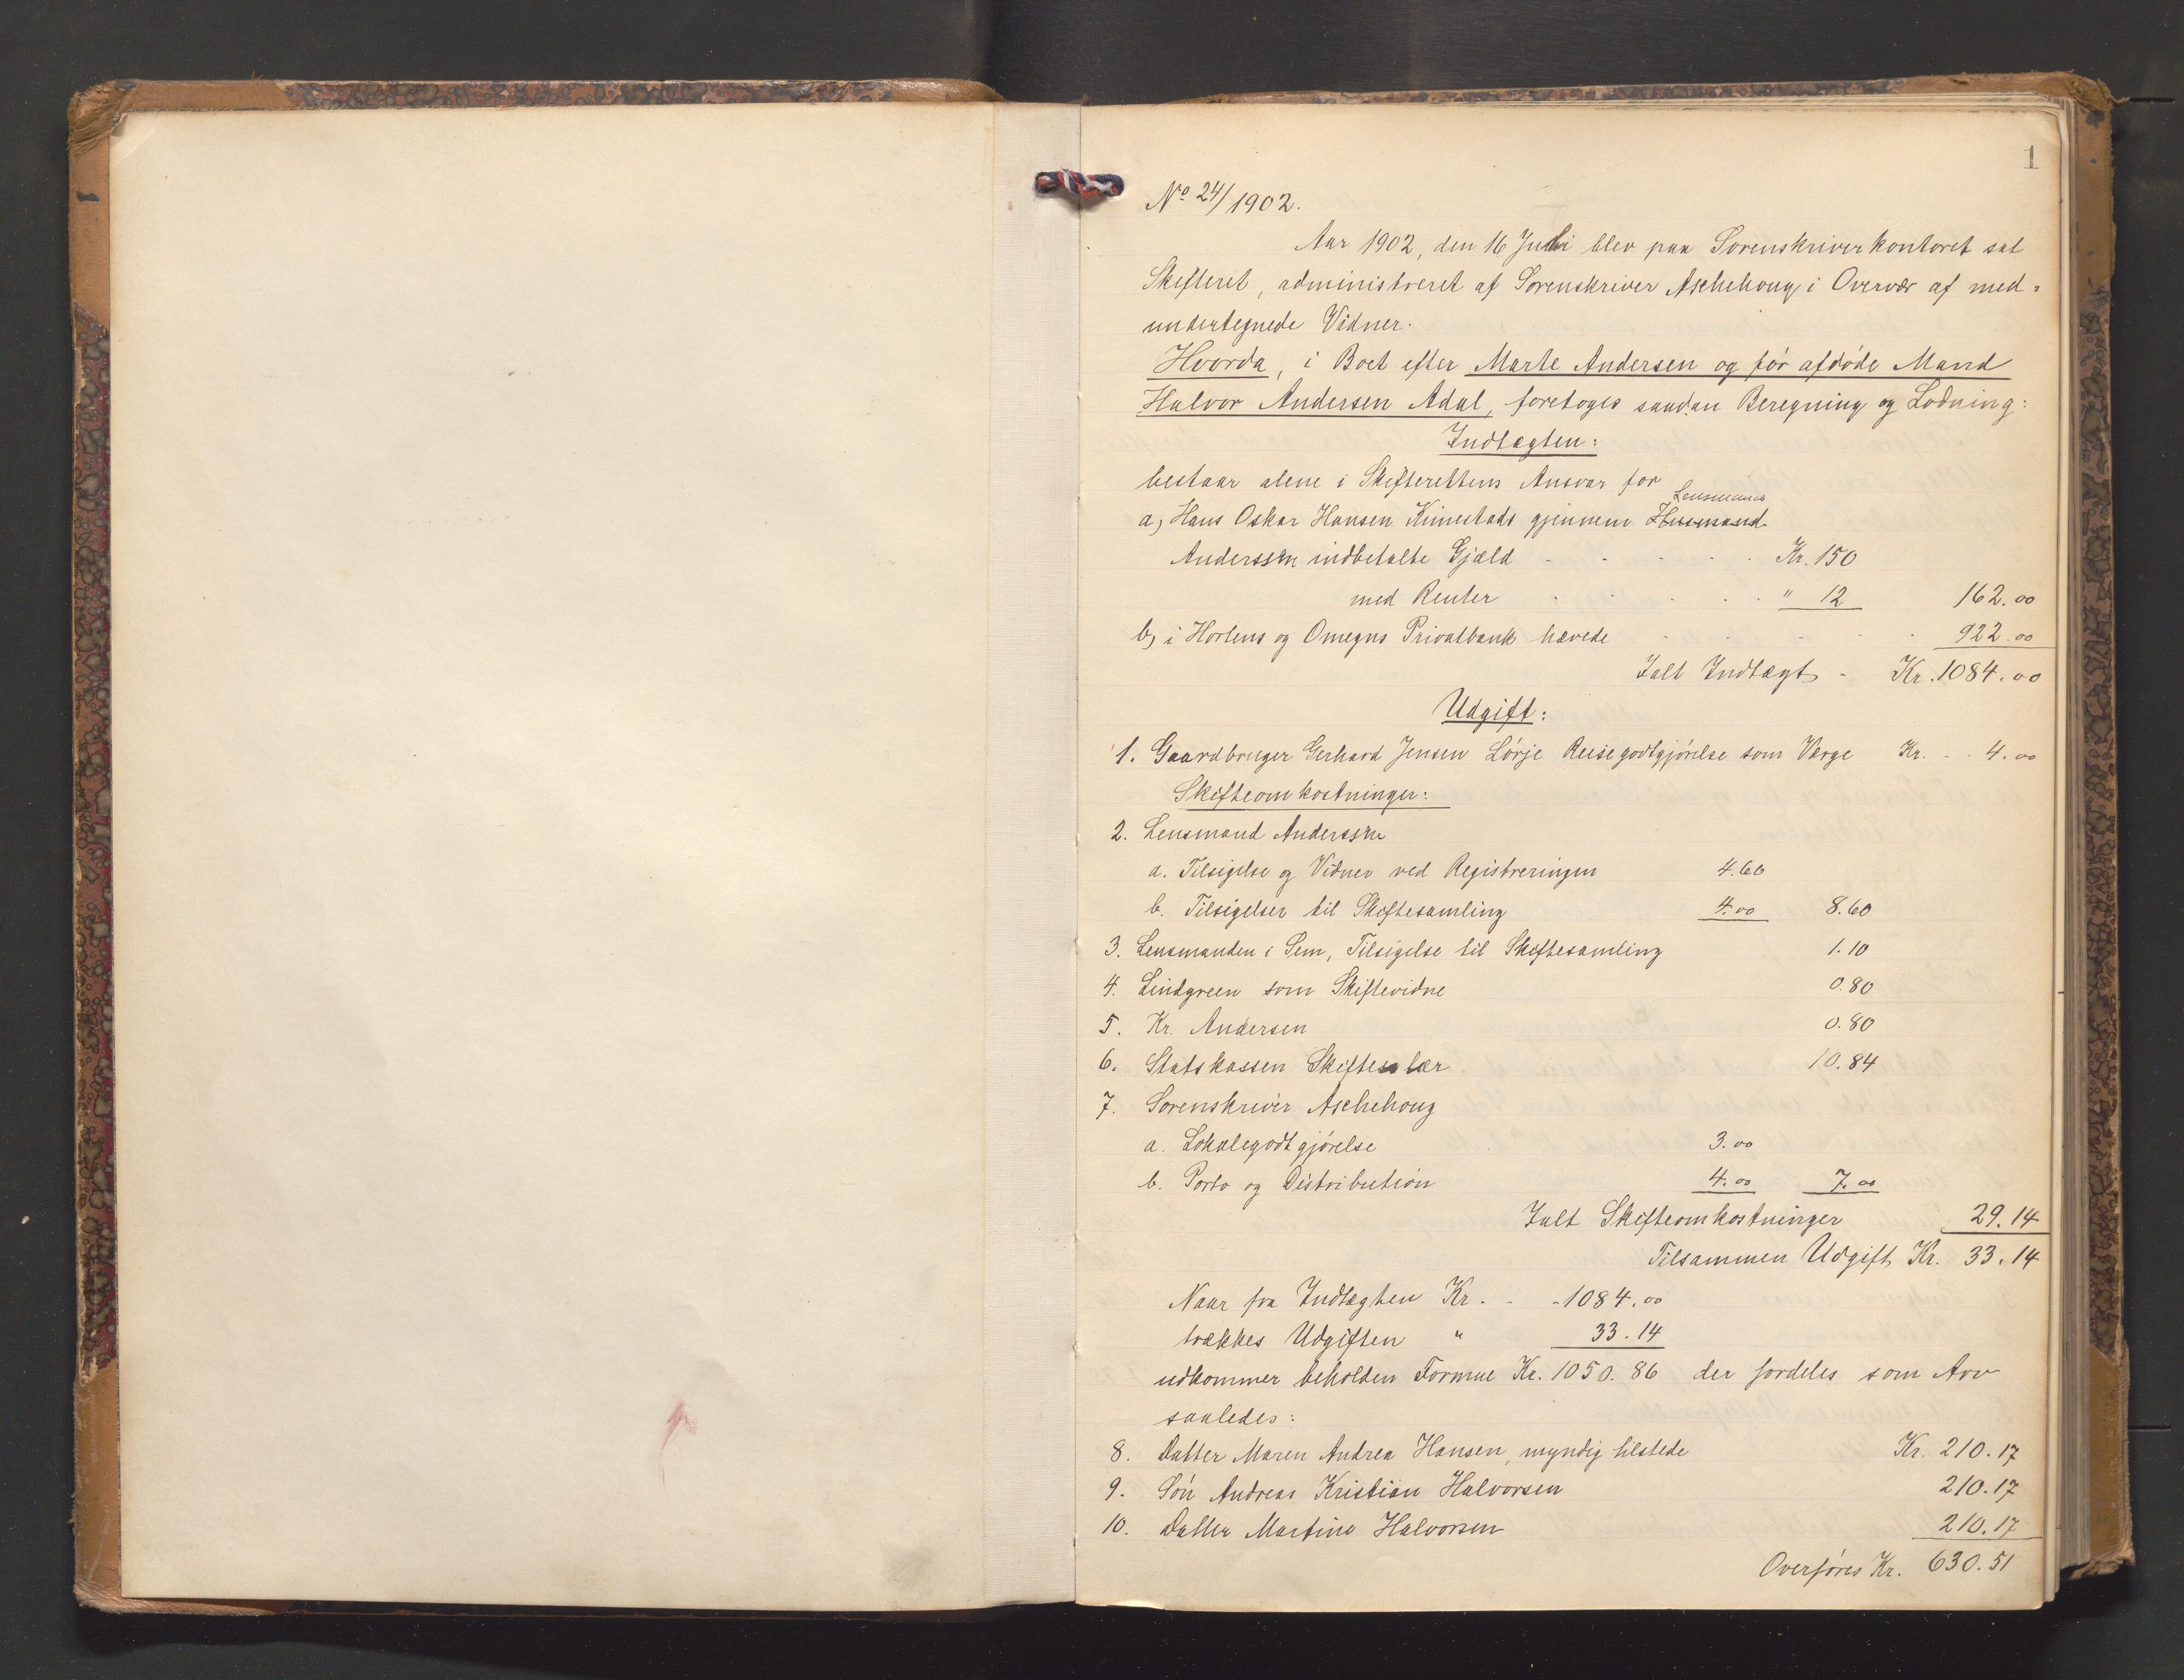 1
No 24/1902.
Aar 1902, den 16 Juli blev paa Sorenskriverkontoret sat
Skifteret, administreret af Sorenskriver Aschehoug i Overvær af med-
undertegnede Vidner.
Hvorda, i Boet efter Marte Andersen og før afdøde Mand
Halvor Andersen Adal, foretoges saadan Beregning og Lodning:
Indtægten:
bestaar alene i Skifterettens Ansvar for
Lensmand
a, Hans Oskar Hansen Kimestads gjennem Husmand
Anderssen indbetalte Gjæld - - - - - Kr. 150
med Renter - - - - - " 12 162.00
b, i Hortens og Omegns Privatbank hævede - - - - - 922.00
Ialt Indtægt - Kr. 1084.00
Udgift:
1. Gaardbruger Gerhard Jensen Lørje Reisegodtgjørelse som Værge Kr. - - 4.00
Skifteomkostninger:
2. Lensmand Anderssen
a. Tilsigelse og Vidner ved Registreringen 4.60
b. Tilsigelser til Skiftesamling 4.00 8.60
3. Lensmanden i Sem, Tilsigelse til Skiftesamling 1.10
4. Lindgreen som Skiftevidne 0.80
5. Kr. Andersen 0.80
6. Statskassen Skiftesalær 10.84
7. Sorenskriver Aschehoug
a. Lokalegodtgjørelse 3.00
b. Porto og Distribution 4.00 7.00
Ialt Skifteomkostninger 29.14
Tilsammen Udgift Kr. 33.14
Naar fra Indtægten Kr. - - 1084.00
trækkes Udgiften " 33.14
udkommer beholden Formue Kr. 1050.86 der fordeles som Arv
saaledes:
8. Datter Maren Andrea Hansen, myndig tilstede Kr. 210.17
9. Søn Andreas Kristian Halvorsen 210.17
10. Datter Martine Halvorsen 210.17
Overføres Kr. 630.51